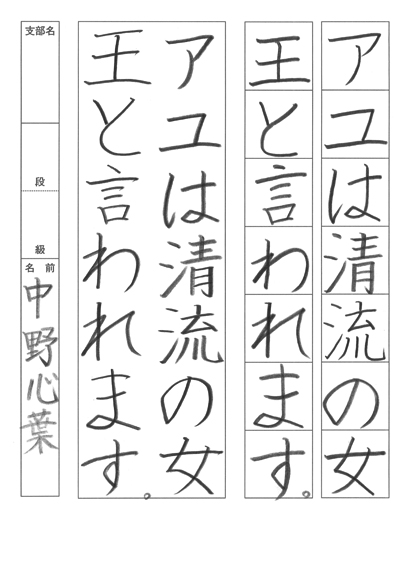 アユは清流の女
王と言われます。
アユは清流の女
王と言われます。
支部名
段
級
名前
中野心葉